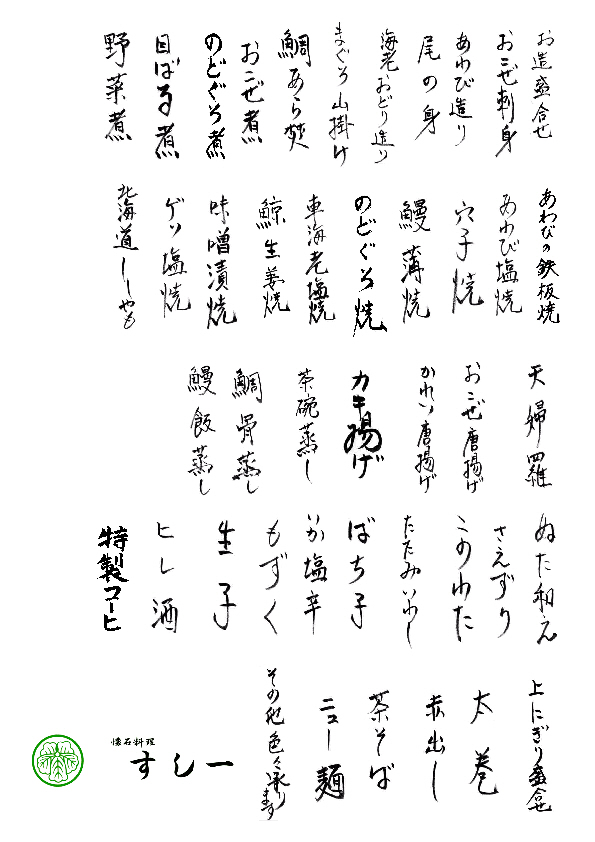 お造盛合せ
おこぜ刺身
あわび造り
尾の身
海老おどり造り
まぐろ山掛け
鯛あら焚
おこぜ煮
のどぐろ煮
目ばる煮
野菜煮
あわびの鉄板焼
あわび塩焼
穴子焼
鰻薄焼
のどぐろ焼
車海老塩焼
鯨生姜焼
味噌漬焼
ゲソ塩焼
北海道ししゃも
天婦羅
おこぜ唐揚げ
かれい唐揚げ
カキ揚げ
茶碗蒸し
鯛骨蒸し
鰻飯蒸し
ぬた和え
さえずり
このわた
たたみいわし
ばち子
いか塩辛
もずく
生子
ヒレ酒
特製コーヒ
上にぎり盛合せ
太巻
赤出し
茶そば
ニュー麺
その他色々承ります
懐石料理
すし一